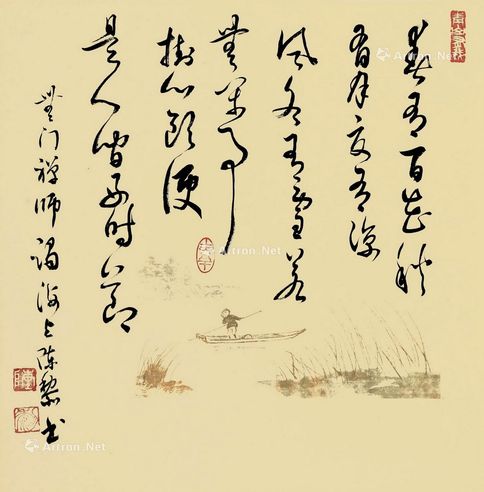 春有百花秋
有月夏有凉
风冬有雪若
無闲事
掛心頭便
是人间好时节
無门禅师偈海上陈黎书
Artron.Net
Artron.Net
Artron.Net